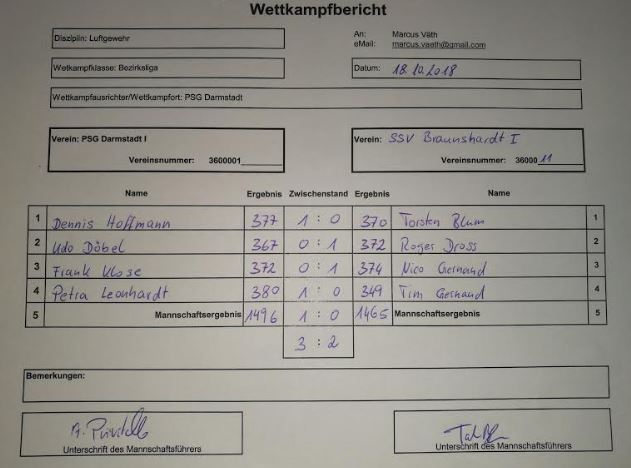 Wettkampfbericht
Disziplin: Luftgewehr
An: Marcus Väth
eMail: marcus.vaeth@gmail.com
Wettkampfklasse: Bezirksliga
Datum: 18.10.2018
Wettkampfausrichter/Wettkampfort: PSG Darmstadt
Verein: PSG Darmstadt I
Verein: SSV Braunshardt I
Vereinsnummer: 3600001
Vereinsnummer: 36000 11
Name Ergebnis Zwischenstand Ergebnis Name
1 Dennis Hoffmann 377 1 : 0 370 Torsten Blum 1
2 Udo Döbel 367 0 : 1 372 Roger Dross 2
3 Frank Klose 372 0 : 1 374 Nico Gernand 3
4 Petra Leonhardt 380 1 : 0 349 Tim Gernand 4
5 Mannschaftsergebnis 1496 1 : 0 1465 Mannschaftsergebnis 5
3 : 2
Bemerkungen:
Unterschrift des Mannschaftsführers
Unterschrift des Mannschaftsführers